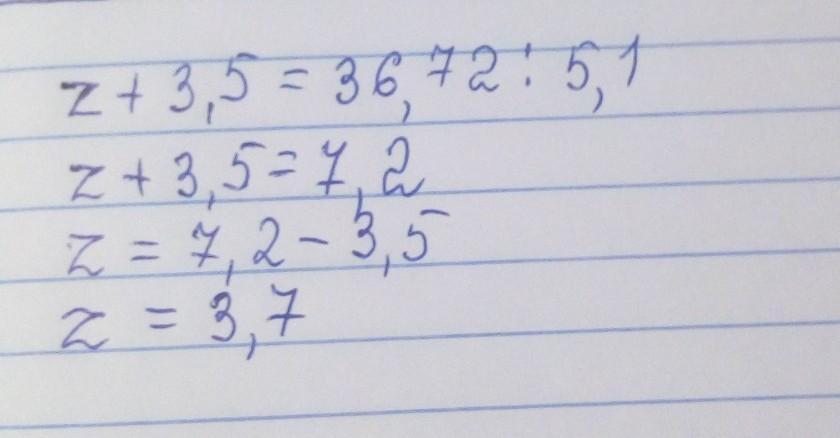 z + 3,5 = 36,72 : 5,1
z + 3,5 = 7,2
z = 7,2 - 3,5
z = 3,7